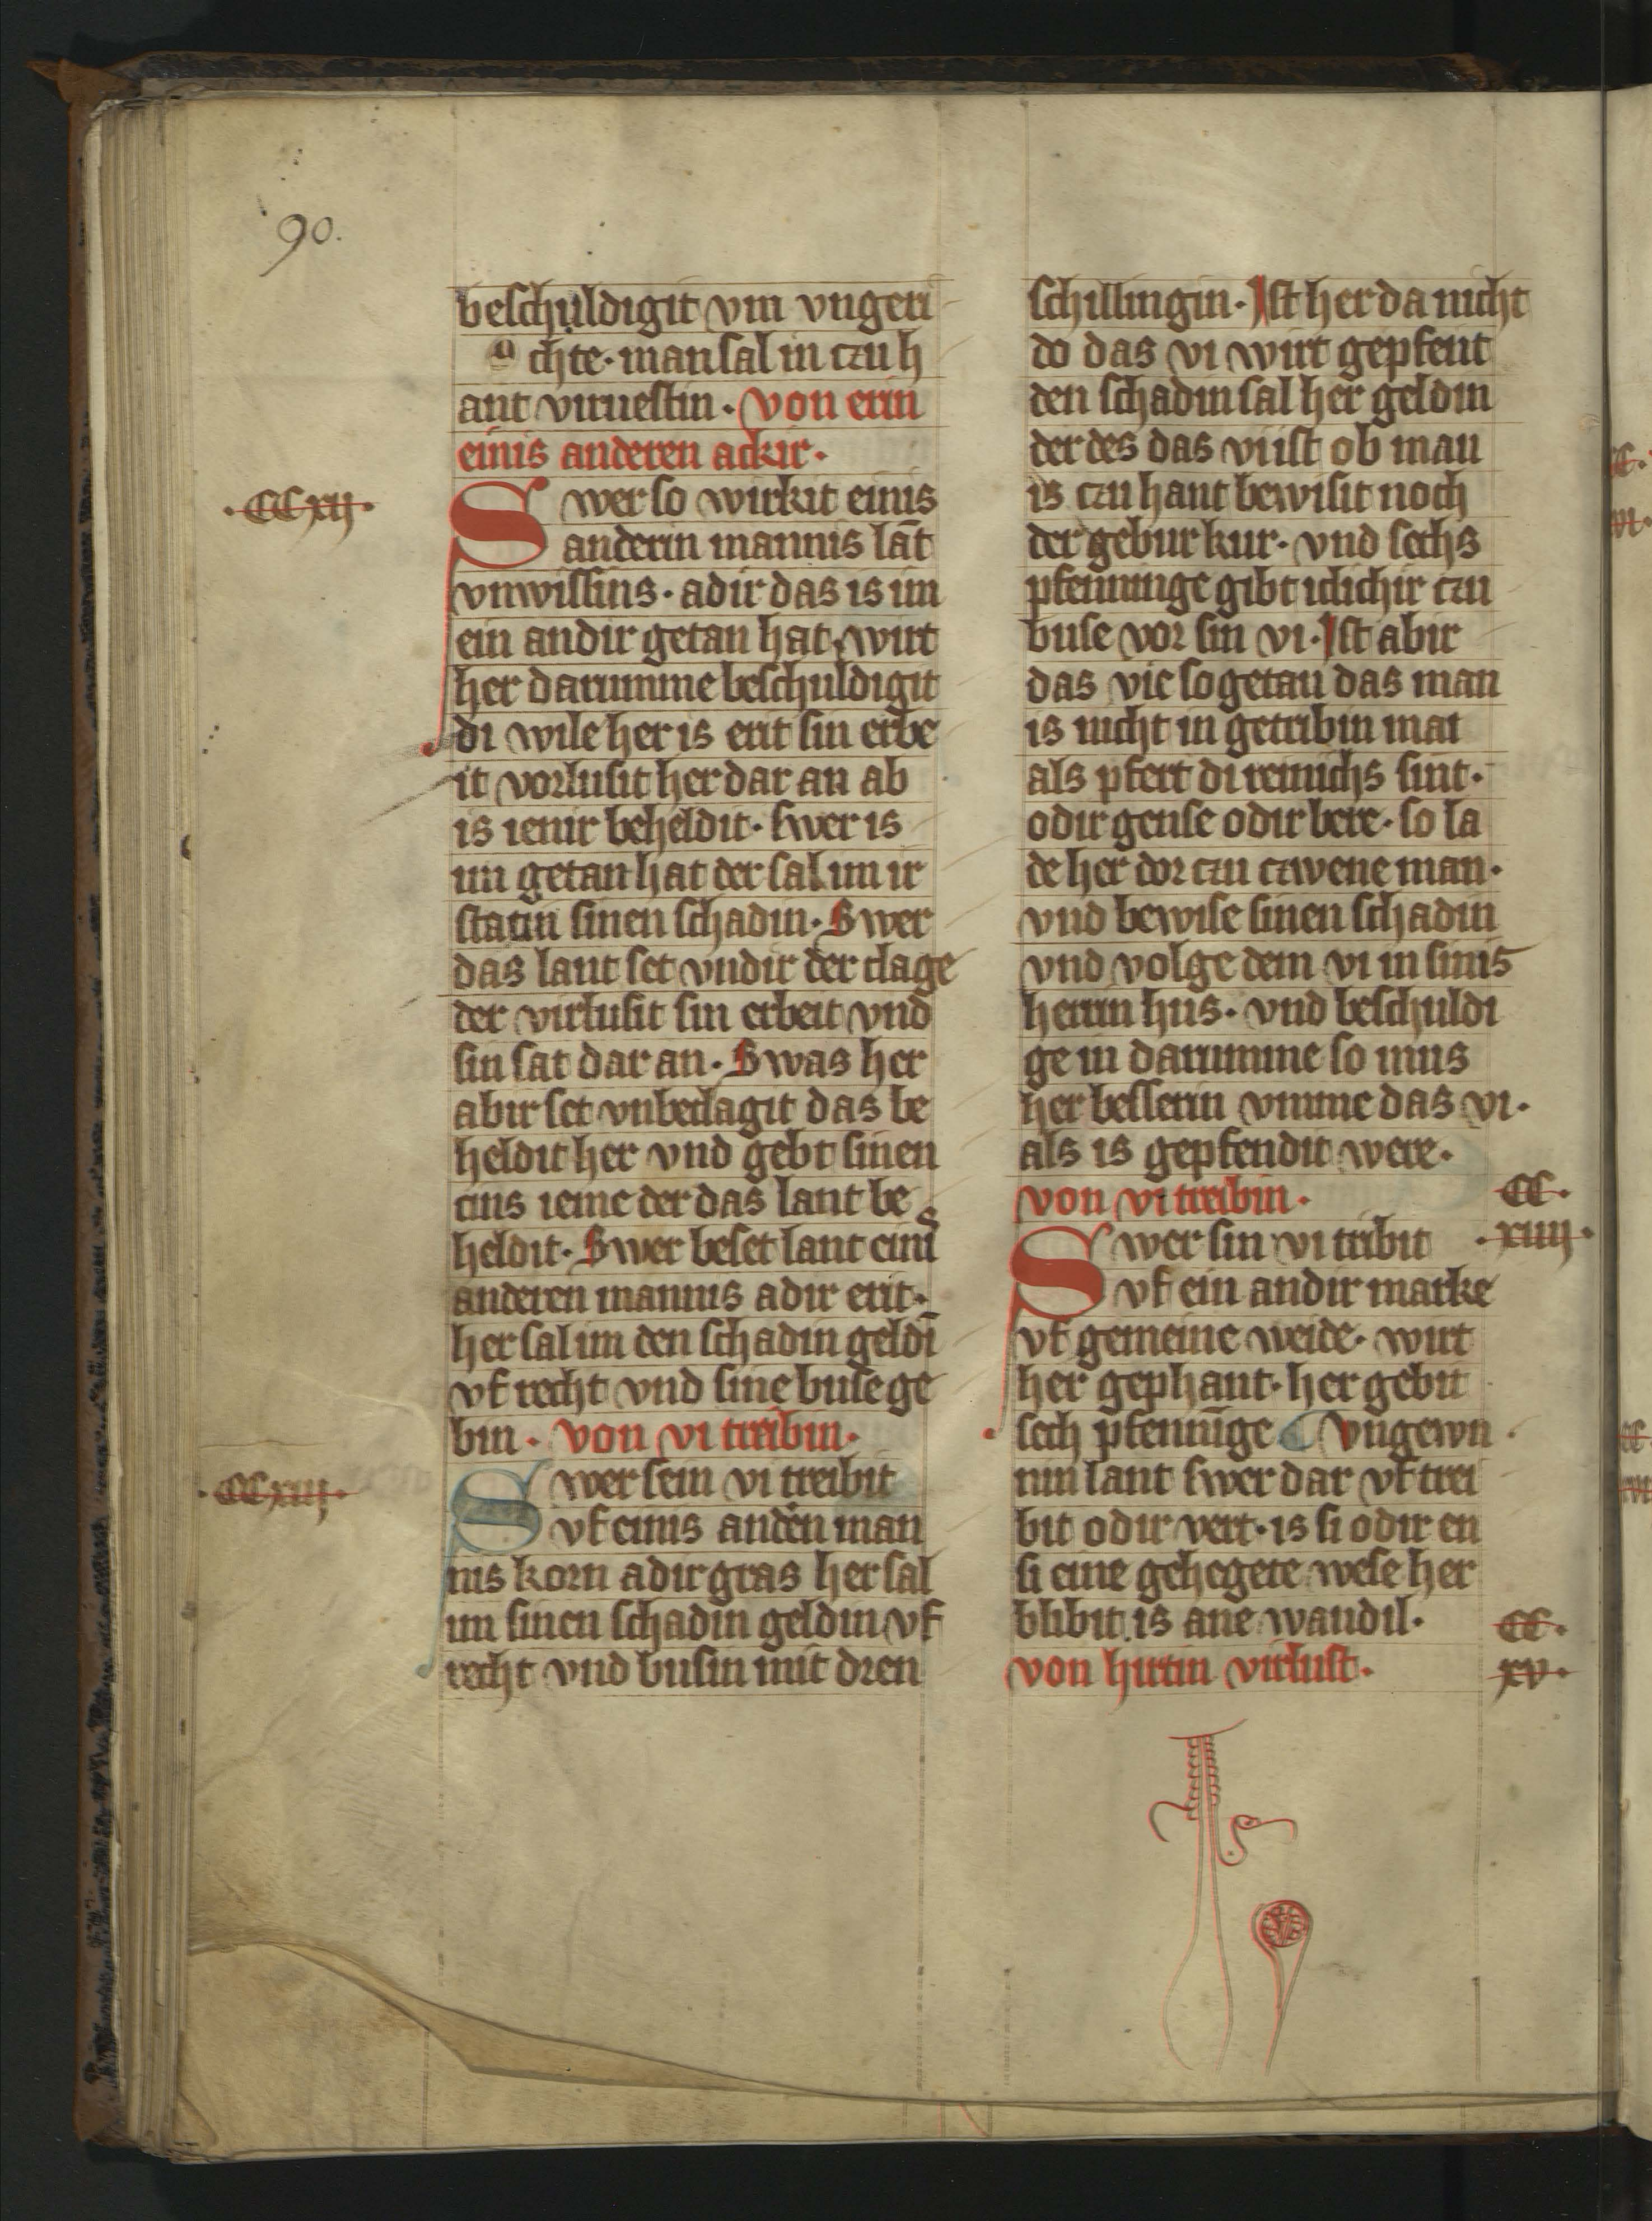 90.
beschuldigit vm vngeri
chte · man sal in czu h
ant viruestin · von erin
einis anderen ackir ·
· CCxij ·
Swer so wirkit einis
anderin mannis lāt
vnwissins · adir das is im
ein andir getan hat · wirt
her darumme beschuldigit
di wile her is erit sin erbe
it vorlusit her dar an ab
is ienir beheldit · swer is
im getan hat der sal im ir
statin sinen schadin · Swer
das lant set vndir der clage
der virlusit sin erbeit vnd
sin sat dar an · Swas her
abir set vnbeclagit das be
heldit her vnd gebt sinen
cins ieme der das lant be
heldit · Swer beset lant einis
anderen mannis adir erit ·
her sal im den schadin geldī
vf recht vnd sine buse ge
bin · von vi treibin ·
· CCxiij ·
Swer sein vi treibit
vf einis anděn man
nis korn adir gras her sal
im sinen schadin geldin vf
recht vnd busin mit dren
schillingin · Ist her da nicht
do das vi wirt gepfent
den schadin sal her geldin
der des das vi ist ob man
is czu hant bewisit noch
der gebur kur · vnd sechs
pfenninge gibt iclichir czu
buse vor sin vi · Ist abir
das vie so getan das man
is nicht in getribin mai
als pfert di reinichs sint ·
odir gense odir bere · so la
de her dor czu czwene man ·
vnd bewise sinen schadin
vnd volge dem vi in sinis
herrin hus · vnd beschuldi
ge in darumme so mus
her besserin vmme das vi ·
als is gepfendit were ·
von vi treibin ·
CC ·
· xiiij ·
Swer sin vi tribit
vf ein andir marke
vf gemeine weide · wirt
her gephant · her gebit
sech pfennīge Vngewn
nin lant swer dar vf trei
bit odir vert · is si odir en
si eine gehegete wese her
blibit is ane wandil ·
von hirtin virlust ·
CC ·
xv ·